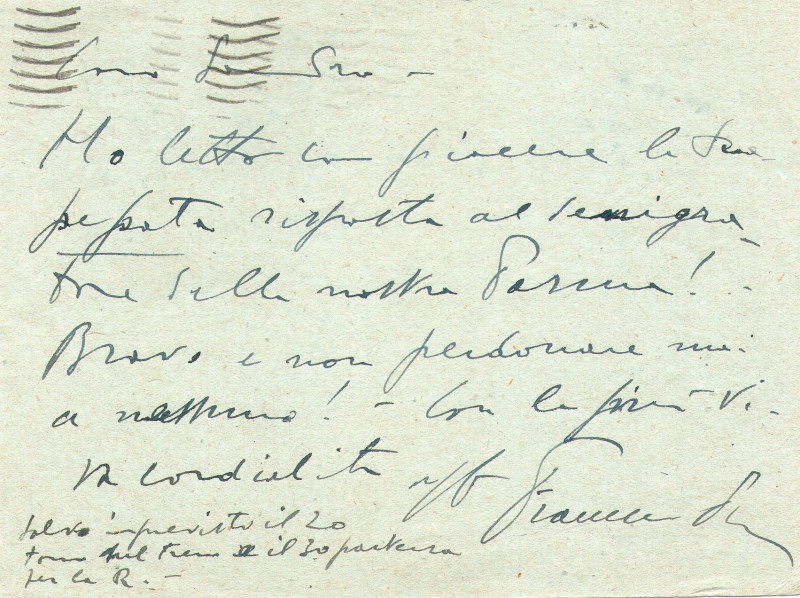 Caro Sandro –
Ho letto con piacere la tua
pepata risposta al denigra-
tore della nostra Parma! –
Bravo e non perdonare mai
a nessuno! – Con la più vi-
va cordialità Francesco
salvo imprevisto il 20
torno sul treno e il 30 partenza
per la R. –